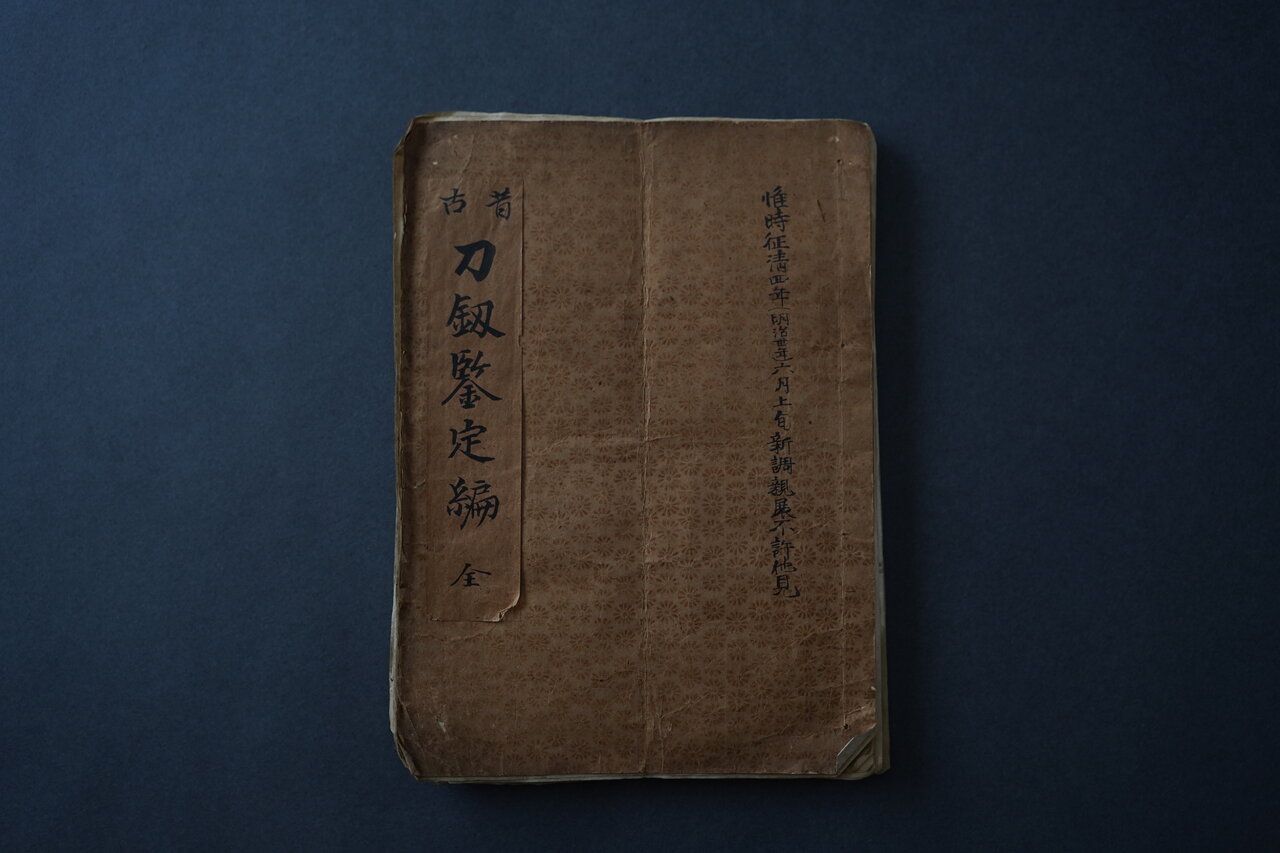 惟時征清四年明治丗年六月上旬新調親展不許他見
昔古
刀釼鑒定編
全